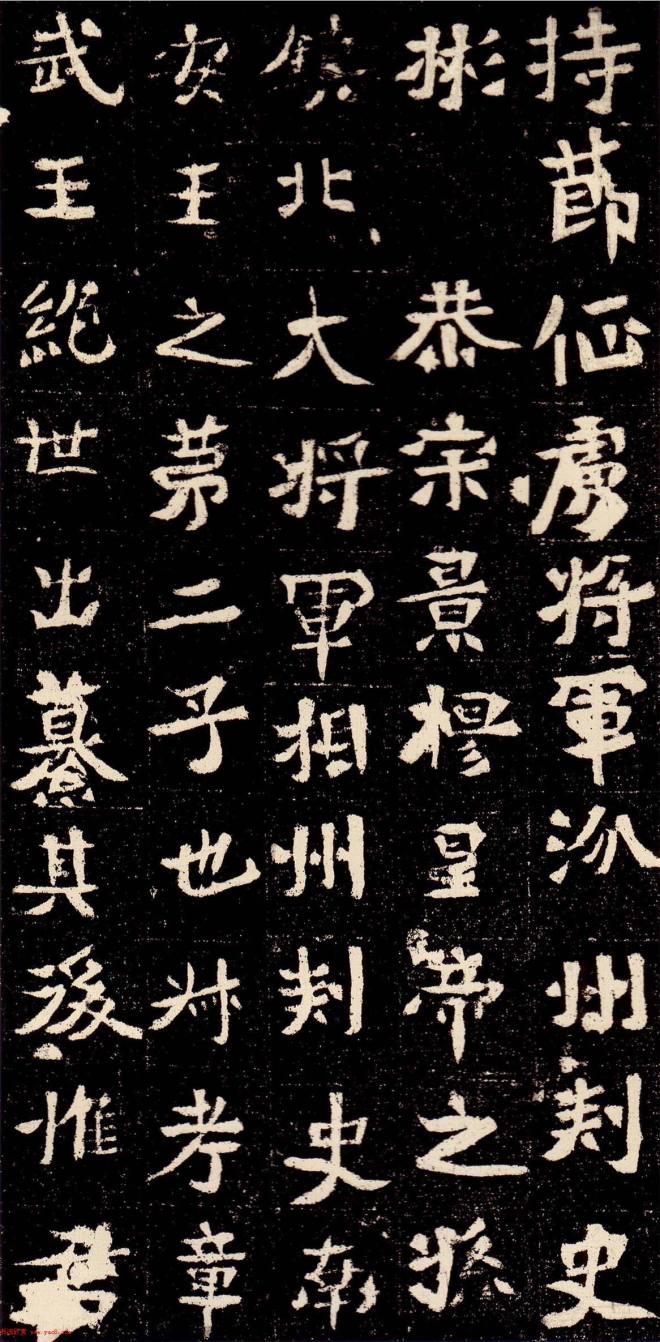 持節征虜將軍汾州刺史
彬 恭宗景穆皇帝之孫
鎮北大將軍相州刺史南
安王之第二子也叔考章
武王絕世出纂其後惟君